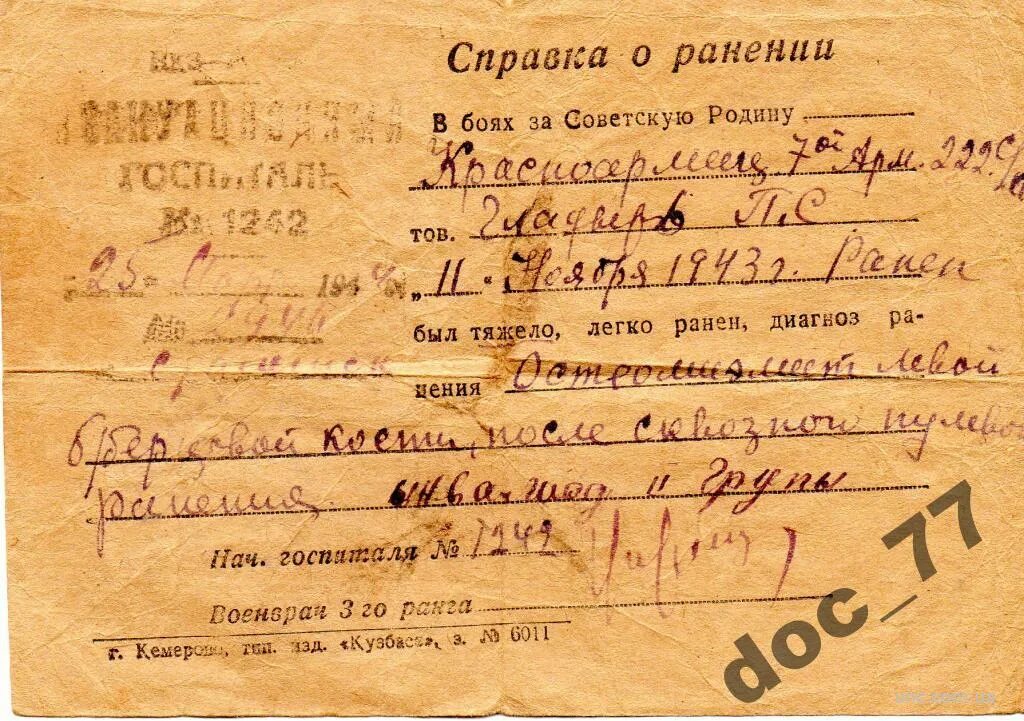 НКЗ
ЭВАКУАЦИОННЫЙ
ГОСПИТАЛЬ
№ 1242
"25" 1944 г.
№
Справка о ранении
В боях за Советскую Родину
Красноармеец 7ой Арм. 222
тов. П.С
„11" Ноября 1943 г. Ранен
был тяжело, легко ранен, диагноз ра-
нения Остеомиэлит левой
б/берцовой кости, после сквозного пулевого
ранения инвалид II групы
Нач. госпиталя № 1242
Военврач 3 го ранга
г. Кемерово, тип. изд. «Кузбасс», з. № 6011
doc_77